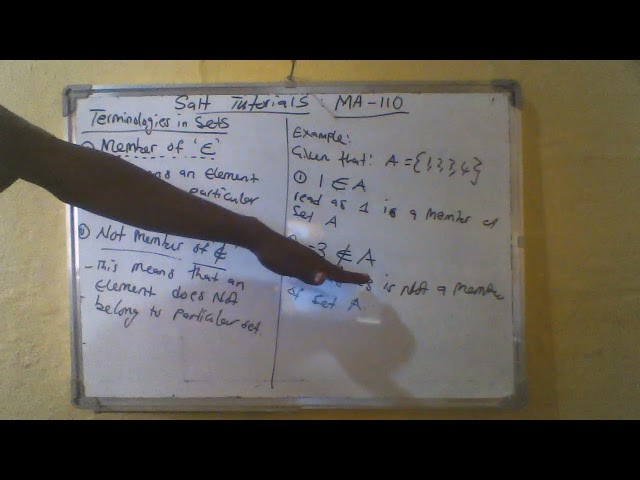 Salt Tutorials: MA-110
Terminologies in Sets
① Member of '∈'
an Element
particular
② Not Member of '∉'
- This means that an
Element does Not
belong to particular set.
Example:
Given that: A = {1,2,3,4}
① 1 ∈ A
read as 1 is a member of
Set A
-3 ∉ A
is not a member
of Set A